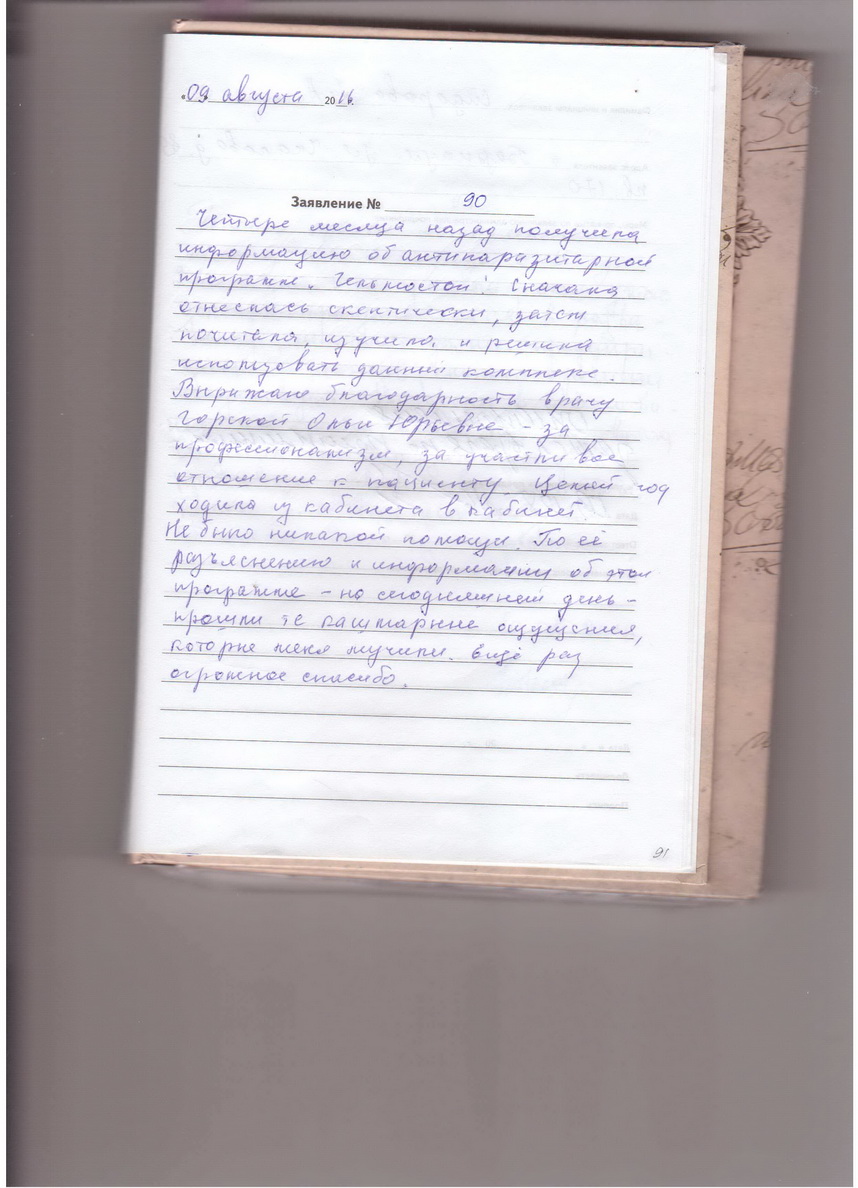 «09» августа 2016г.
Заявление № 90
Четыре месяца назад получила
информацию об антипаразитарной
программе „Гельмостоп". Сначала
отнеслась скептически, затем
почитала, изучила и решила
использовать данный комплекс.
Выражаю благодарность врачу
Горской Ольге Юрьевне – за
профессионализм, за участливое
отношение к пациенту. Целый год
ходила из кабинета в кабинет.
Не было никакой помощи. По её
разъяснению и информации об этой
программе – на сегодняшний день –
прошли те кашмарные ощущения,
которые меня мучили. Ещё раз
огромное спасибо.
91